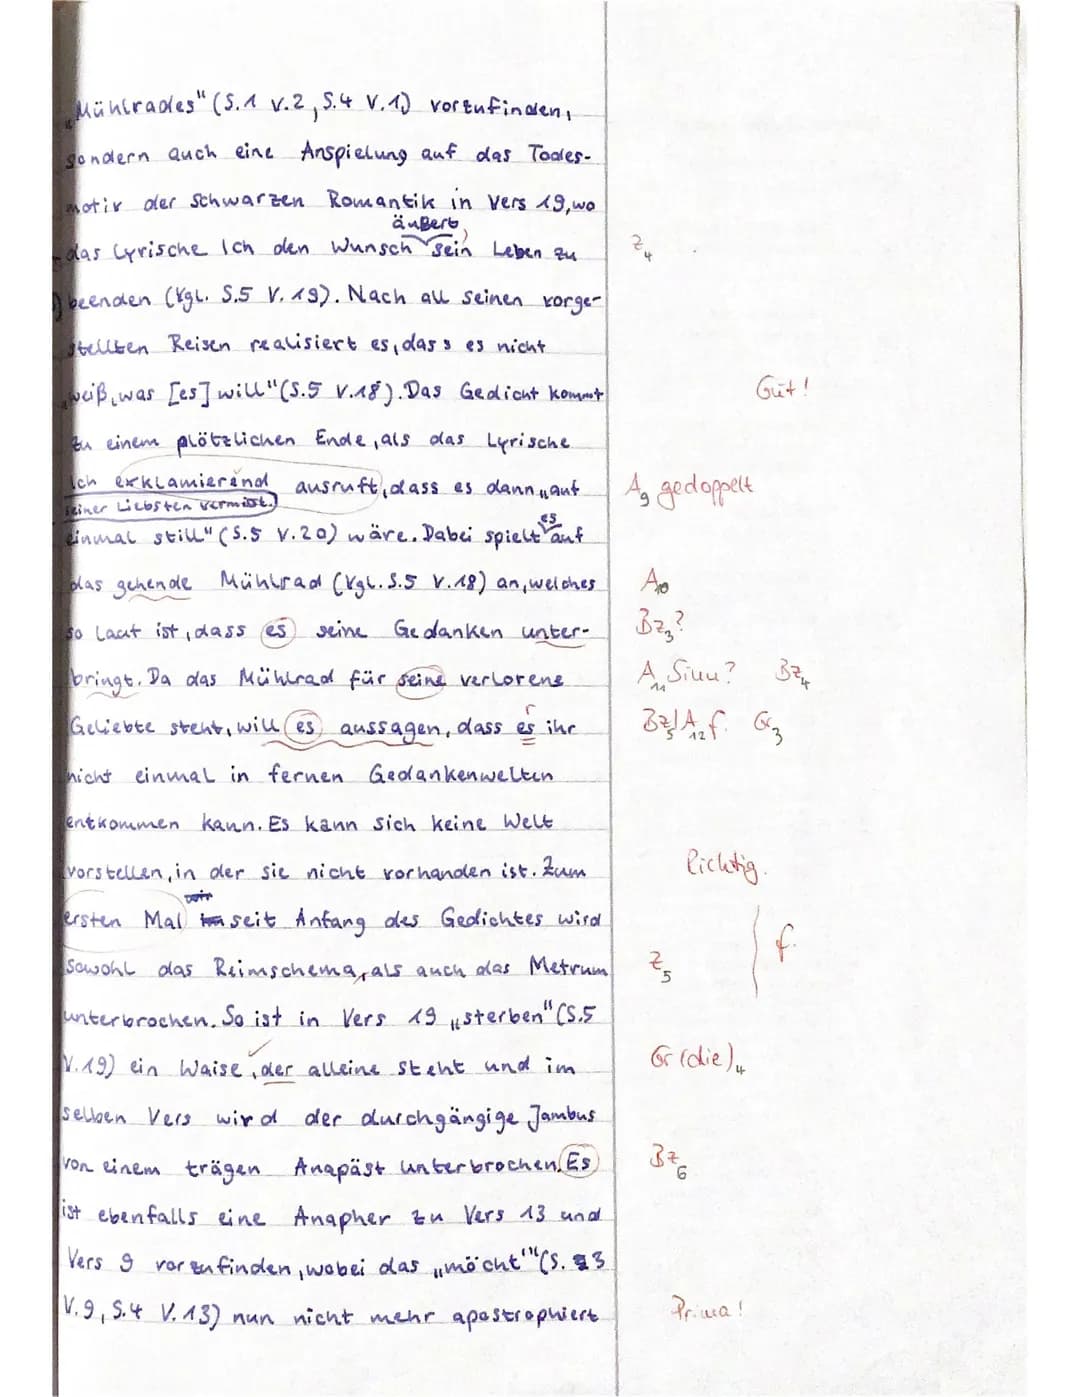 „Mühlrades" (S.1 V.2, S.4 V.1) vorzufinden,
sondern auch eine Anspielung auf das Todes-
motiv der schwarzen Romantik in Vers 19, wo
äußert,
das Lyrische Ich den Wunsch sein Leben zu Z4
beenden (Vgl. S.5 V.19). Nach all seinen vorge-
stellten Reisen realisiert es, dass es nicht
„weiß, was [es] will" (S.5 V.18). Das Gedicht kommt Gut!
zu einem plötzlichen Ende, als das Lyrische
Ich exklamierend ausruft, dass es dann „auf A9 gedoppelt
seiner Liebsten vermisst.
einmal still" (S.5 V.20) wäre. Dabei spielt es auf
das gehende Mühlrad (Vgl. S.5 V.18) an, welches A10
so laut ist, dass es seine Gedanken unter- Bz3?
bringt. Da das Mühlrad für seine verlorene A11 Sinn? Bz4
Geliebte steht, will es aussagen, dass es ihr Bz5/A12 f. Gr3
r
nicht einmal in fernen Gedankenwelten
entkommen kann. Es kann sich keine Welt
vorstellen, in der sie nicht vorhanden ist. Zum Richtig.
ersten Mal seit Anfang des Gedichtes wird f.
sowohl das Reimschema, als auch das Metrum Z5
unterbrochen. So ist in Vers 19 „sterben" (S.5
V.19) ein Waise, der alleine steht und im Gr (die)4
selben Vers wird der durchgängige Jambus
von einem trägen Anapäst unterbrochen. Es Bz6
ist ebenfalls eine Anapher zu Vers 13 und
Vers 9 vorzufinden, wobei das „möcht'" (S.3
V.9, S.4 V.13) nun nicht mehr apostrophiert Prima!